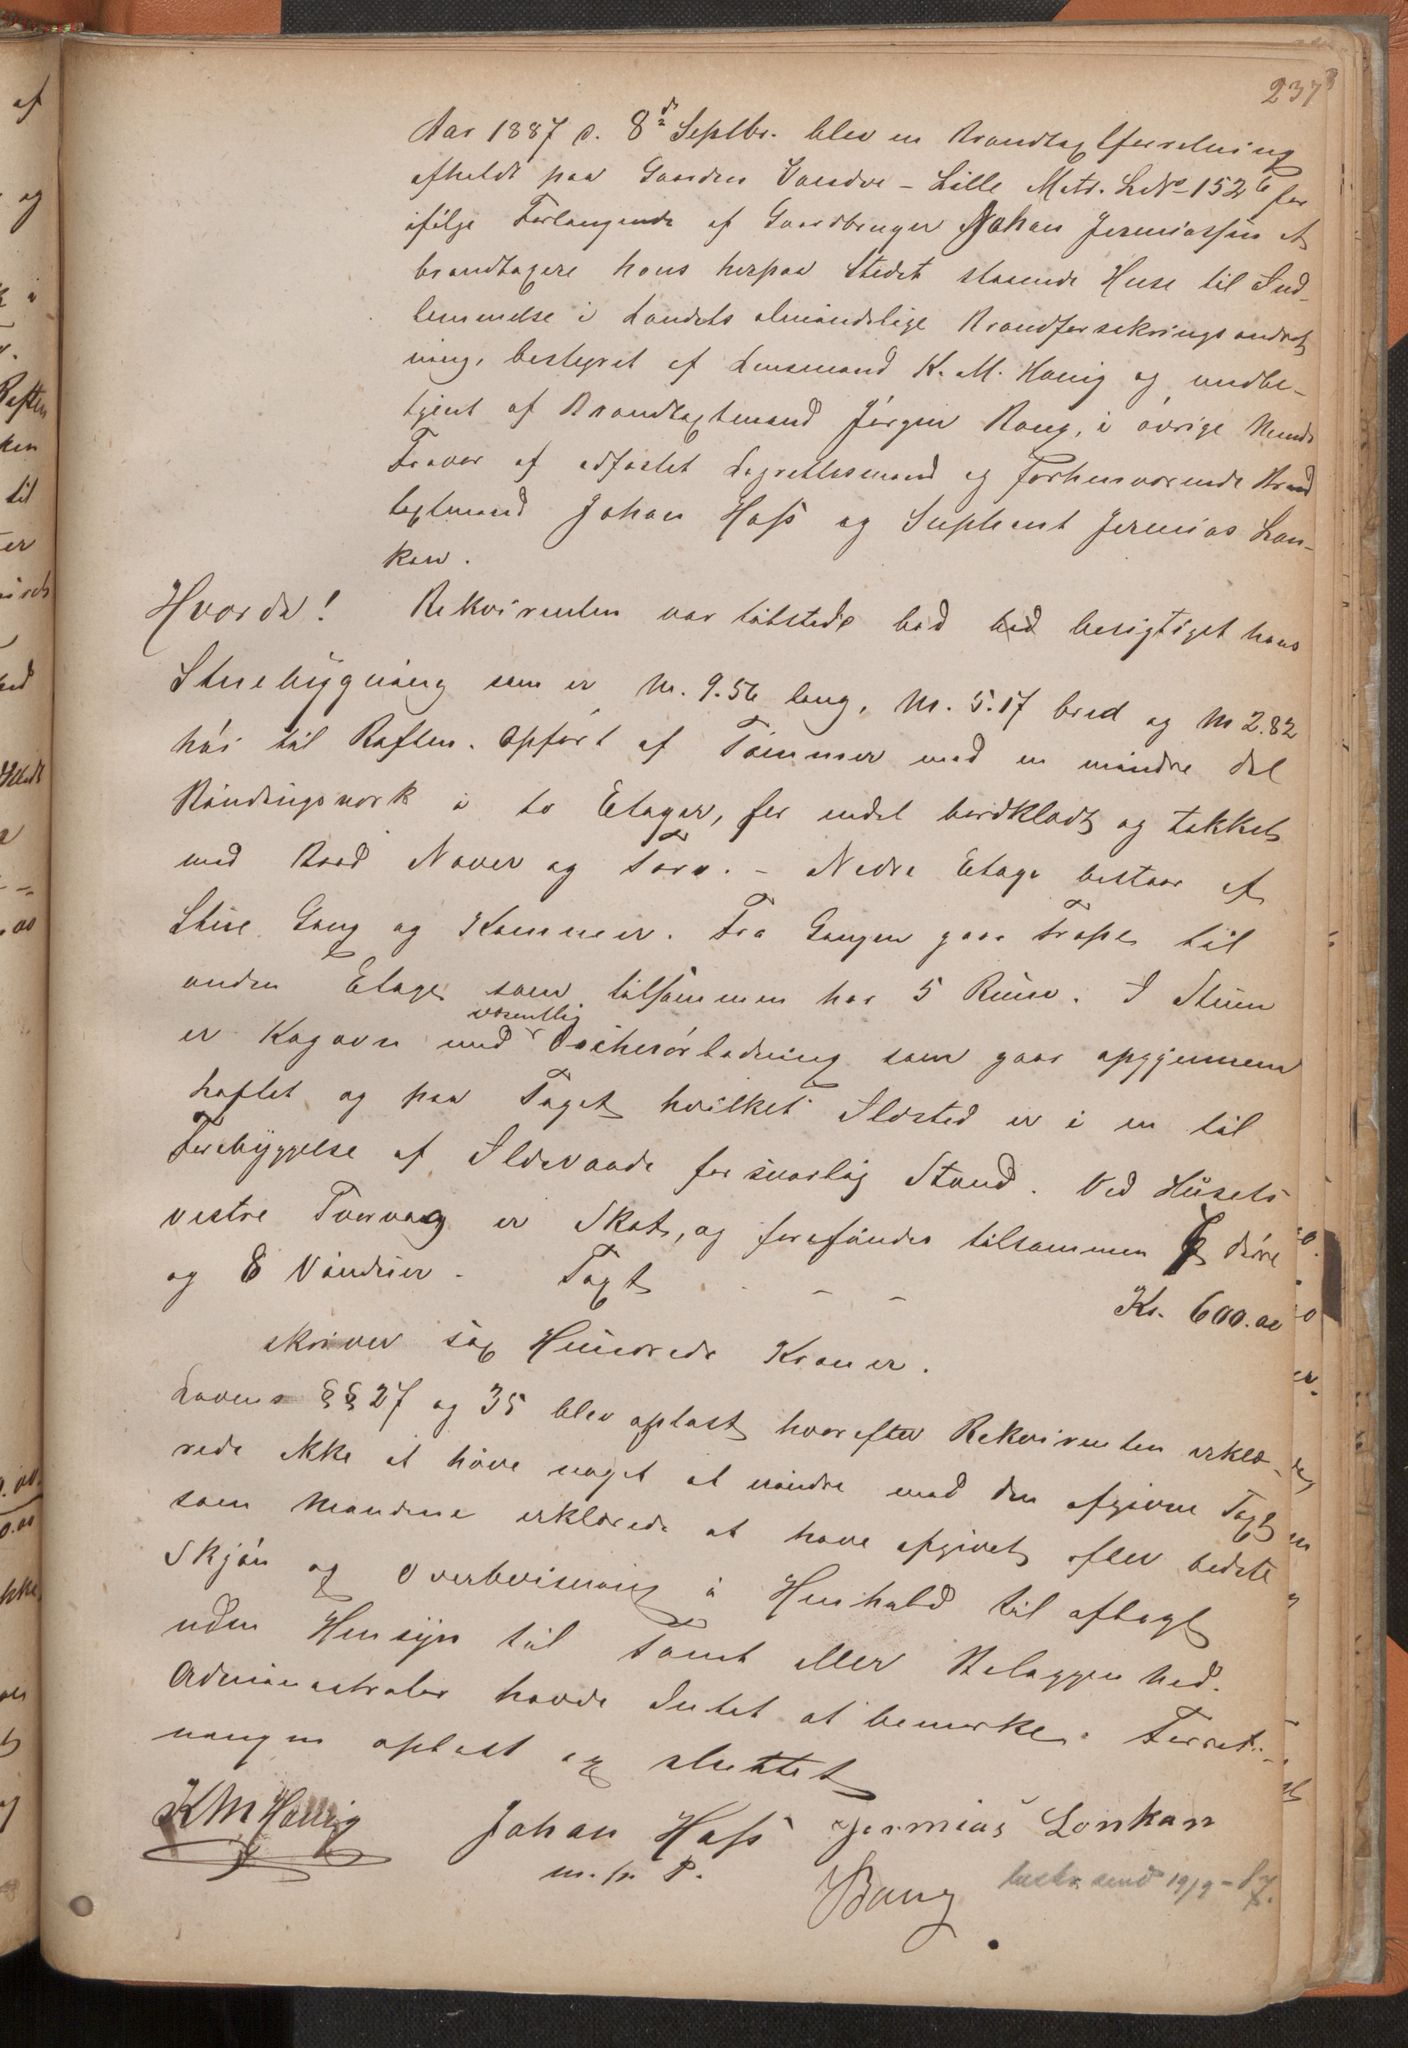 237
Aar 1887 d. 8de Septbr. blev en Brandtaxtforretning
afholdt paa Gaarden Sandve - Lille Matr. L.No 152 b for
ifølge Forlangende af Gaardbruger Johan Jeremiassen at
brandtaxere hans herpaa Stedet staaende Huse til Ind-
lemmelse i Landets almindelige Brandforsikringsindret
ning, bestyret af Lensmand K. M. Hæg og undbe-
tjent af Brandtaxtmand Jørgen Bang, i øvrige Mænds
Fravær af edfæstet Lagrettesmand og forhenværende Brand
taxtmand Johan Hass og Supleant Jeremias Lon-
kan.
Hvorda! Rekvirenten var tilstede bad besigtiget hans
Stuebygning som er M. 9.56 lang, M. 5.17 bred og M 2.82
høi til Raften. Opført af Tømmer med en mindre del
Bindingsverk i to Etager, for endel bordklædt og tækket
med Bord Næver og Torv. - Nedre Etage bestaar af
Stue Gang og Kammer. Fra Gangen gaar Trappe til
anden Etage som tilsammen har 5 Rum. I Stuen
er Kogovn med væsentlig rørledning som gaar opgjennem
loftet og paa Taget hvilket Ildsted er i en til
Forebyggelse af Ildsvaade forsvarlig Stand. Ved Husets
vestre Tvervæg er Skot, og forefindes tilsammen døre
og 8 Vinduer. Taxt - - Kr. 600.00
skriver sex Hundrede Kroner.
Lovens §§ 27 og 35 blev oplæst hvorefter Rekvirenten erklæ-
rede ikke at have noget at erindre mod den afgivne Taxt
som Mændene erklærede at have afgivet efter bedste
Skjøn og Overbevisning i Henhold til aflagt
uden Hensyn til Tomt eller Beliggenhed.
Administrator havde Intet at bemærke. Forret-
ningen oplæst og sluttet
KM Hæg Johan Hass Jermias Lonkan
m. p. P.
JBang send 19/9-87.